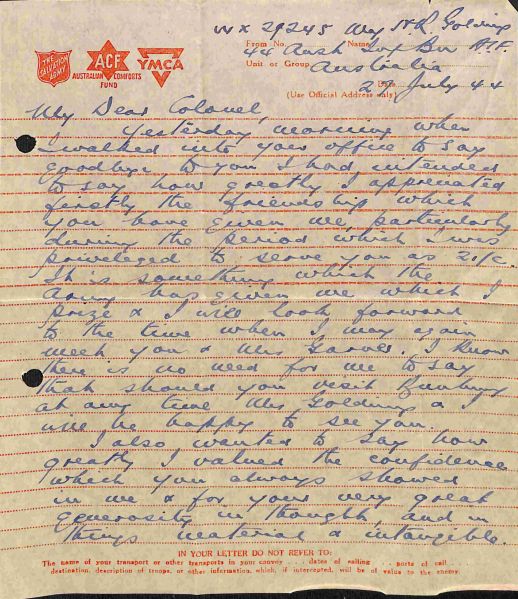 WX 29245 Maj H.R. Golding
THE SALVATION ARMY
ACF
AUSTRALIAN COMFORTS FUND
YMCA
From No. Name
44 Aust Inf Bn A.I.F.
Unit or Group
Australia
27 July 44
(Use Official Address only)
My Dear Colonel,
Yesterday morning when
I walked into your office to say
goodbye to you I had intended
to say how greatly I appreciated
firstly the friendship which
you have given me, particularly
during the period which I was
priveleged to serve you as 2i/c.
It is something which the
Army has given me which I
prize & I will look forward
to the time when I may again
meet you & Mrs Garner. I know
there is no need for me to say
that should you visit Bunbury
at any time Mrs Golding & I
will be happy to see you.
I also wanted to say how
greatly I valued the confidence
which you always showed
in me & for your very great
generosity in thought, and in
things material & intangible.
IN YOUR LETTER DO NOT REFER TO:
The name of your transport or other transports in your convoy . . . dates of sailing . . . ports of call . . .
destination, description of troops, or other information, which, if intercepted, will be of value to the enemy.